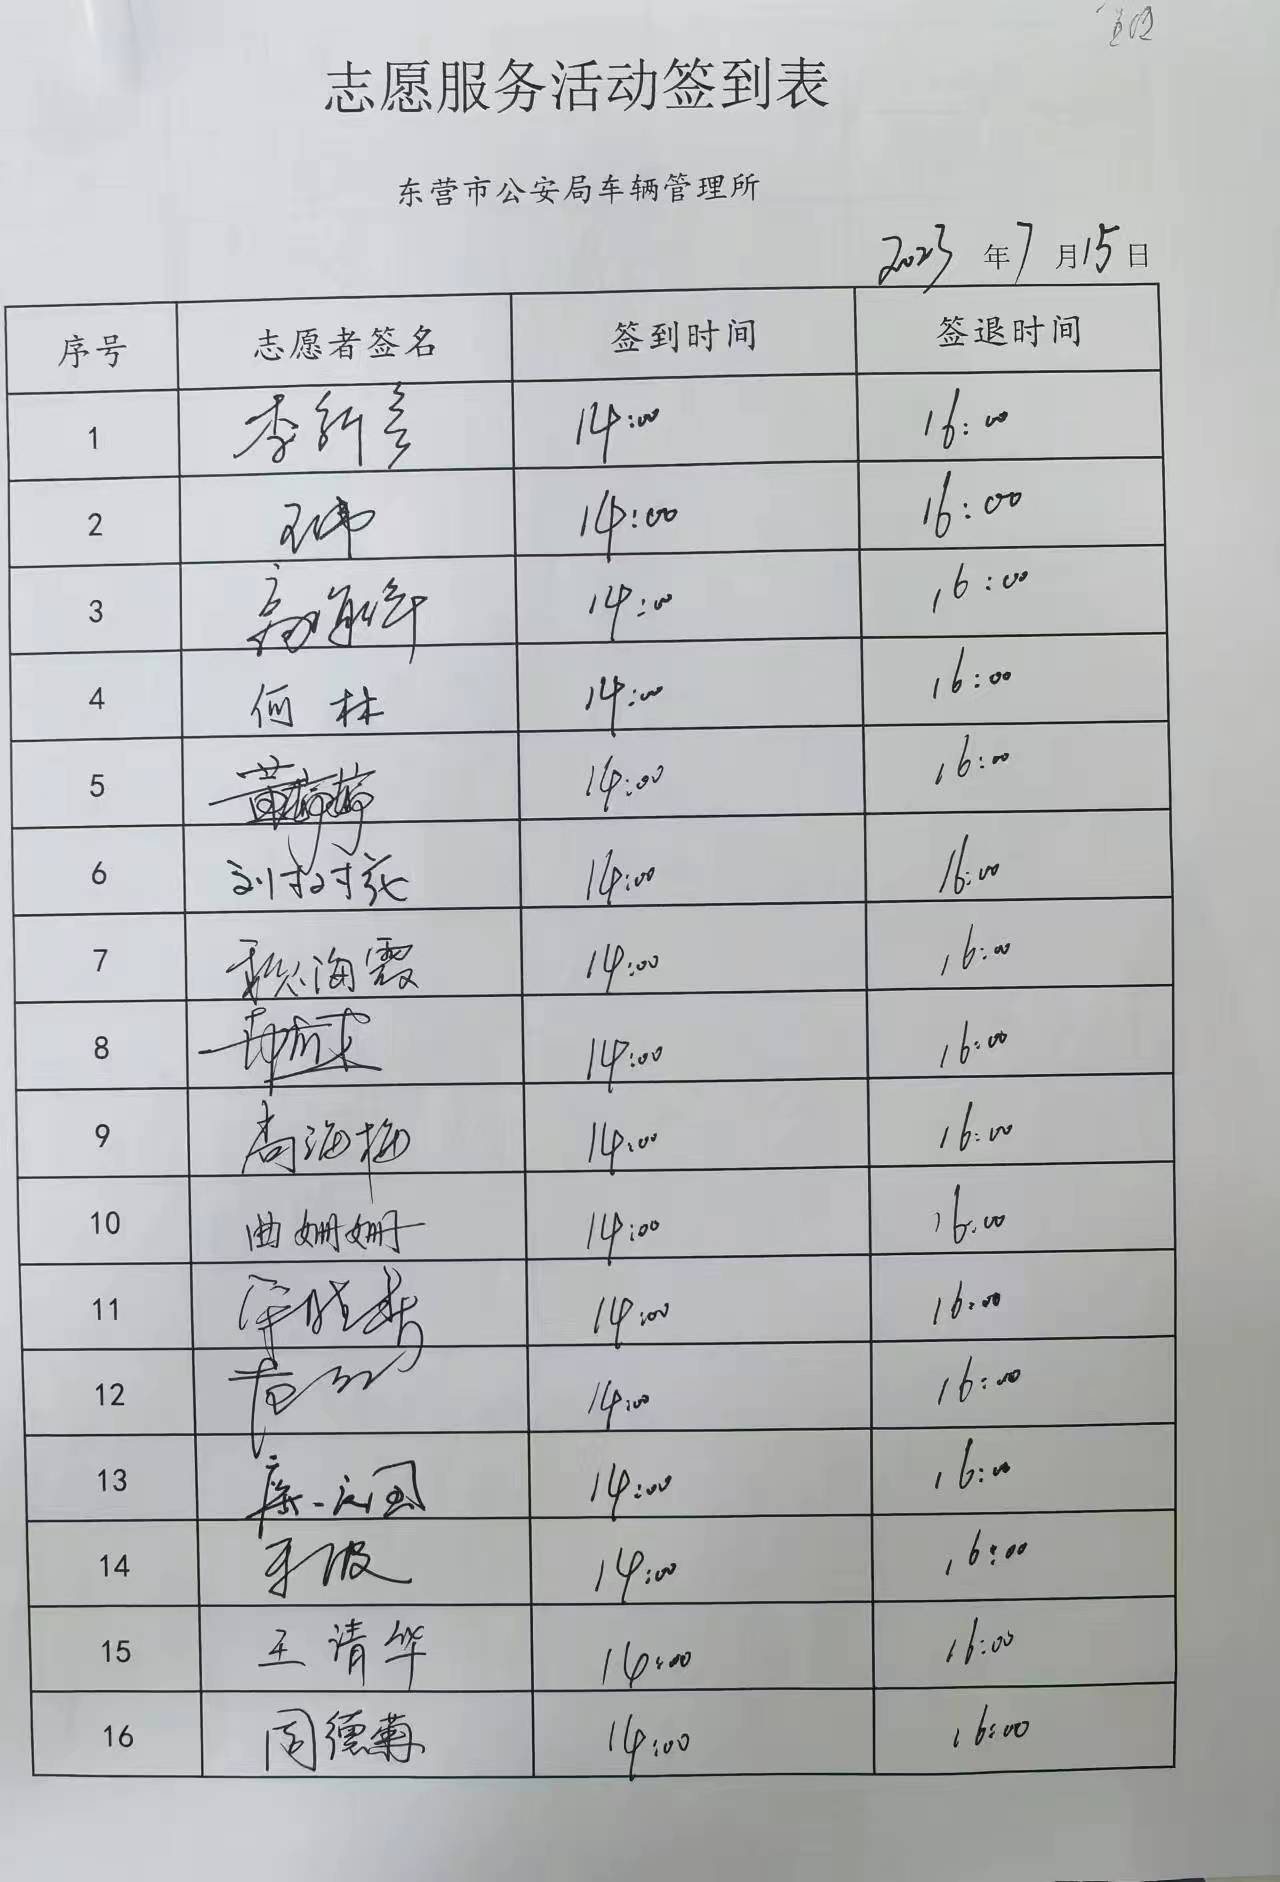 志愿服务活动签到表
东营市公安局车辆管理所
2023 年 7 月 15 日
序号 志愿者签名 签到时间 签退时间
1 14:00 16:00
2 王伟 14:00 16:00
3 14:00 16:00
4 何林 14:00 16:00
5 14:00 16:00
6 14:00 16:00
7 海霞 14:00 16:00
8 14:00 16:00
9 周海梅 14:00 16:00
10 曲姗姗 14:00 16:00
11 14:00 16:00
12 14:00 16:00
13 14:00 16:00
14 14:00 16:00
15 王清华 14:00 16:00
16 周德菊 14:00 16:00